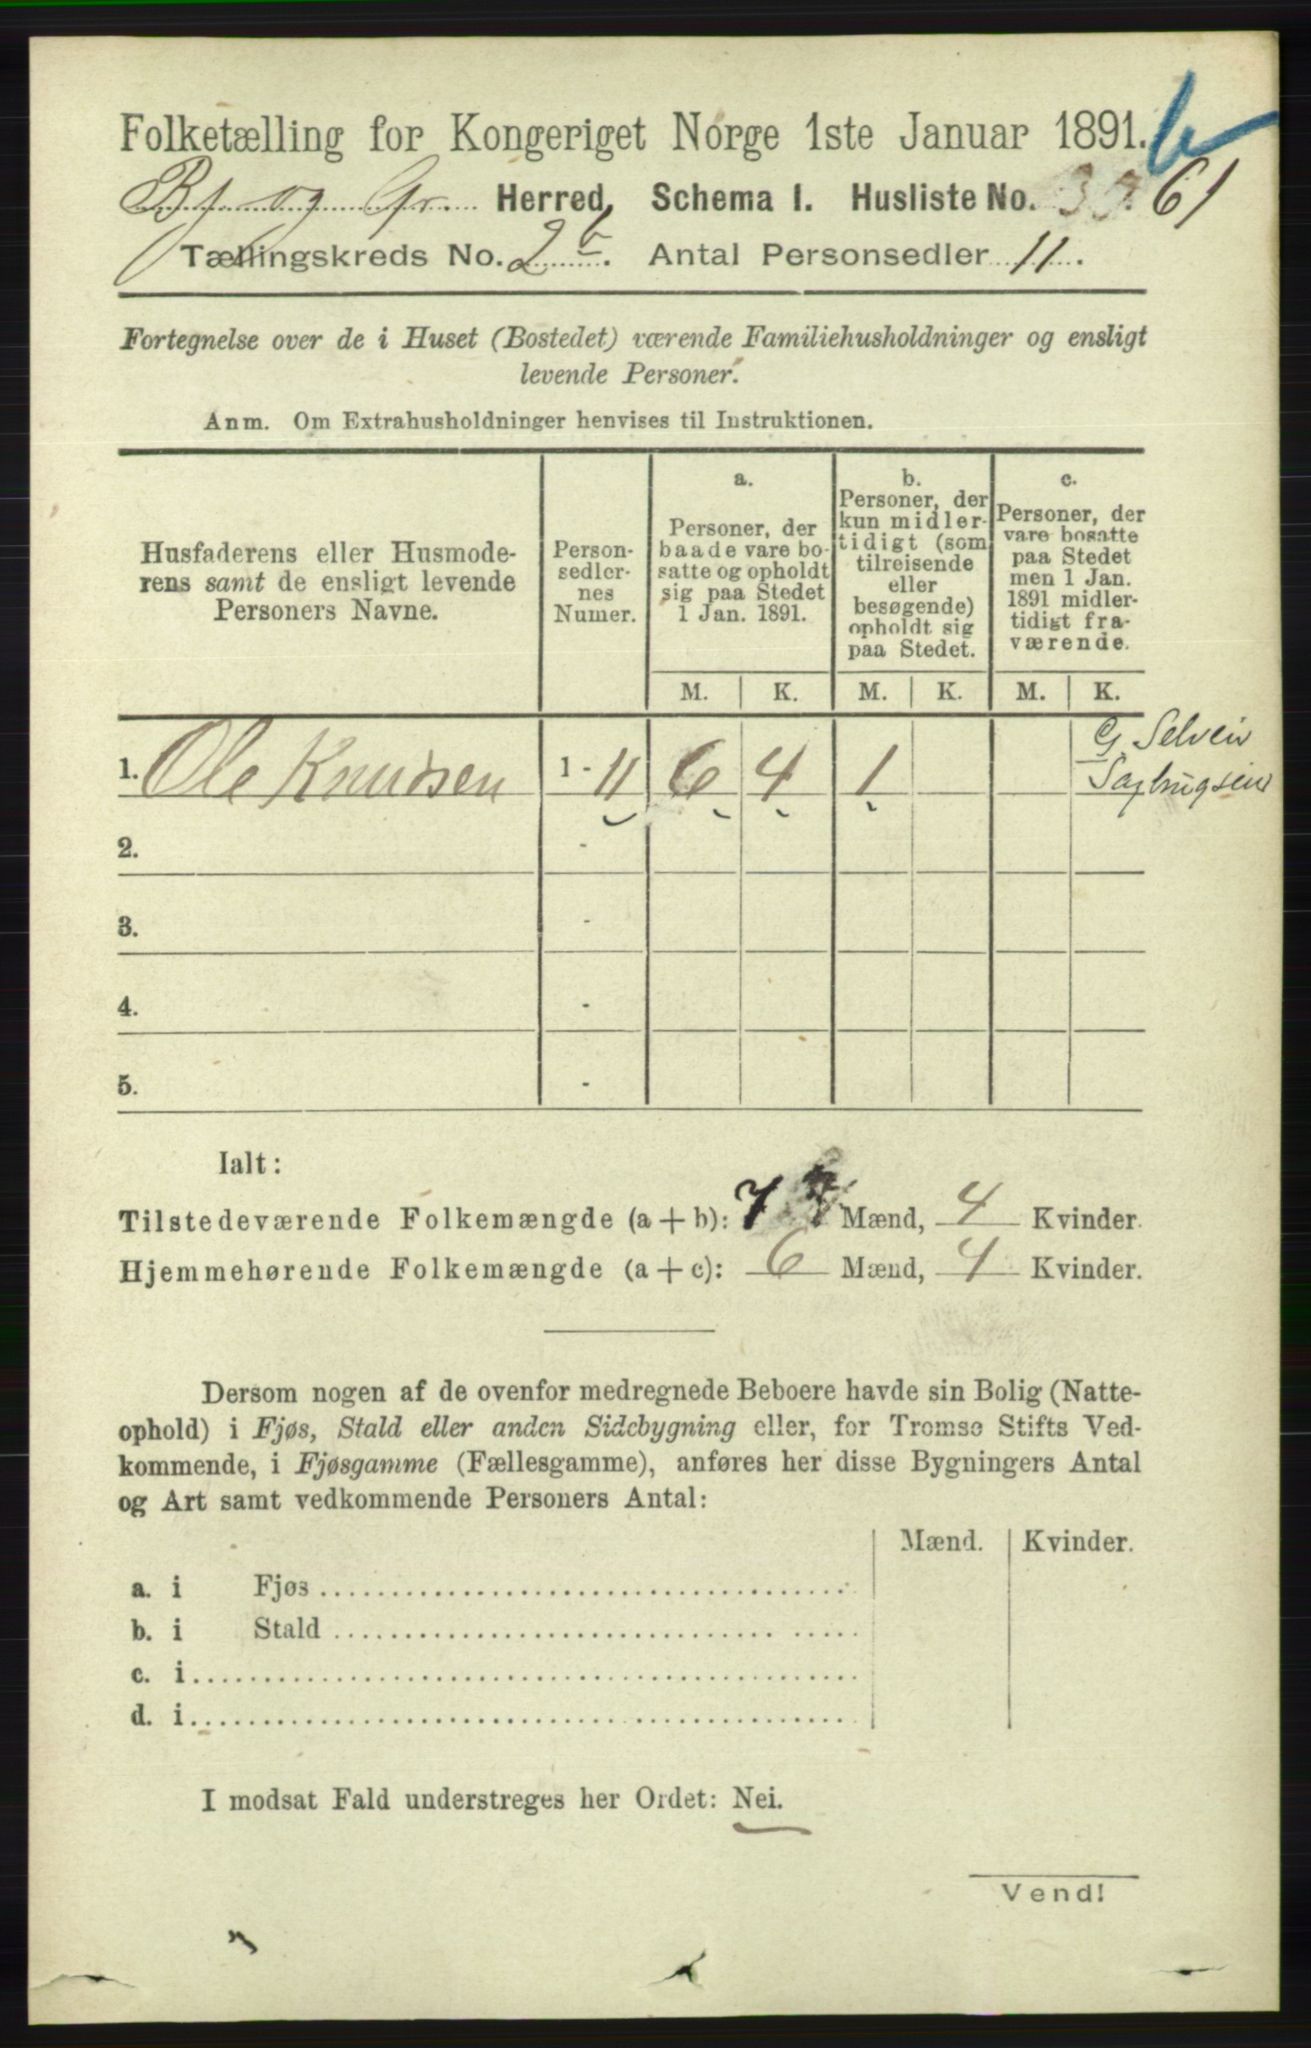 Folketælling for Kongeriget Norge 1ste Januar 1891.
Bj. og Gr. Herred. Schema I. Husliste No. 61
Tællingskreds No. 2 b. Antal Personsedler 11.
Fortegnelse over de i Huset (Bostedet) værende Familiehusholdninger og ensligt
levende Personer.
Anm. Om Extrahusholdninger henvises til Instruktionen.
Husfaderens eller Husmode-
rens samt de ensligt levende
Personers Navne.
Person-
sedler-
nes
Numer.
a.
Personer, der
baade vare bo-
satte og opholdt
sig paa Stedet
1 Jan. 1891.
b.
Personer, der
kun midler-
tidigt (som
tilreisende
eller
besøgende)
opholdt sig
paa Stedet.
c.
Personer, der
vare bosatte
paa Stedet
men 1 Jan.
1891 midler-
tidigt fra-
værende.
M. K. M. K. M. K.
1. Ole Knudsen 1 - 11 6 4 1
G. Selveier
2. -
3. -
4. -
5. -
Ialt:
Tilstedeværende Folkemængde (a + b): 7 Mænd, 4 Kvinder.
Hjemmehørende Folkemængde (a + c): 6 Mænd, 4 Kvinder.
Dersom nogen af de ovenfor medregnede Beboere havde sin Bolig (Natte-
ophold) i Fjøs, Stald eller anden Sidebygning eller, for Tromsø Stifts Ved-
kommende, i Fjøsgamme (Fællesgamme), anføres her disse Bygningers Antal
og Art samt vedkommende Personers Antal:
Mænd. Kvinder.
a. i Fjøs
b. i Stald
c. i
d. i
I modsat Fald understreges her Ordet: Nei.
Vend!